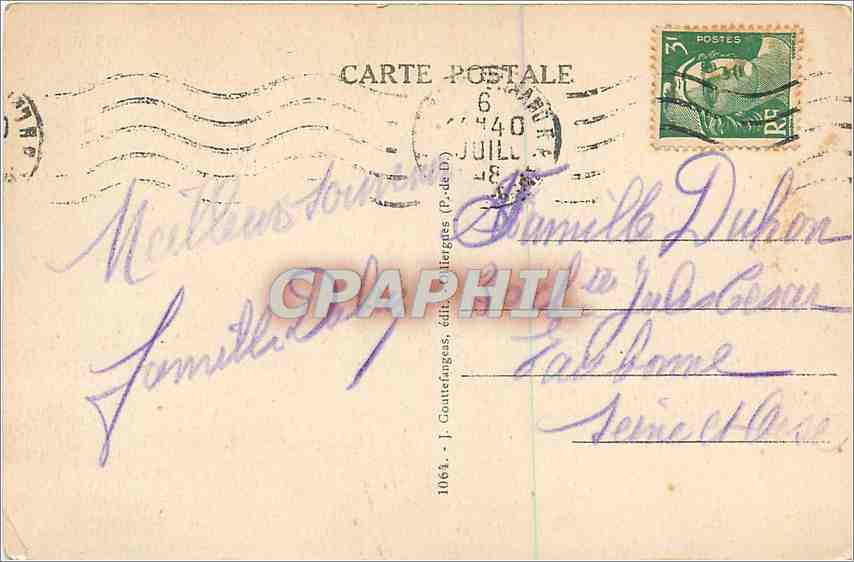 CARTE POSTALE
POSTES
3F
RF
6
40
JUIL
48
Meilleurs Souvenirs
Famille
Famille Duhon
Jules Cesar
Seine et Oise
1064. - J. Gouttefangeas, édit., Olliergues (P.-de D.)
CPAPHIL